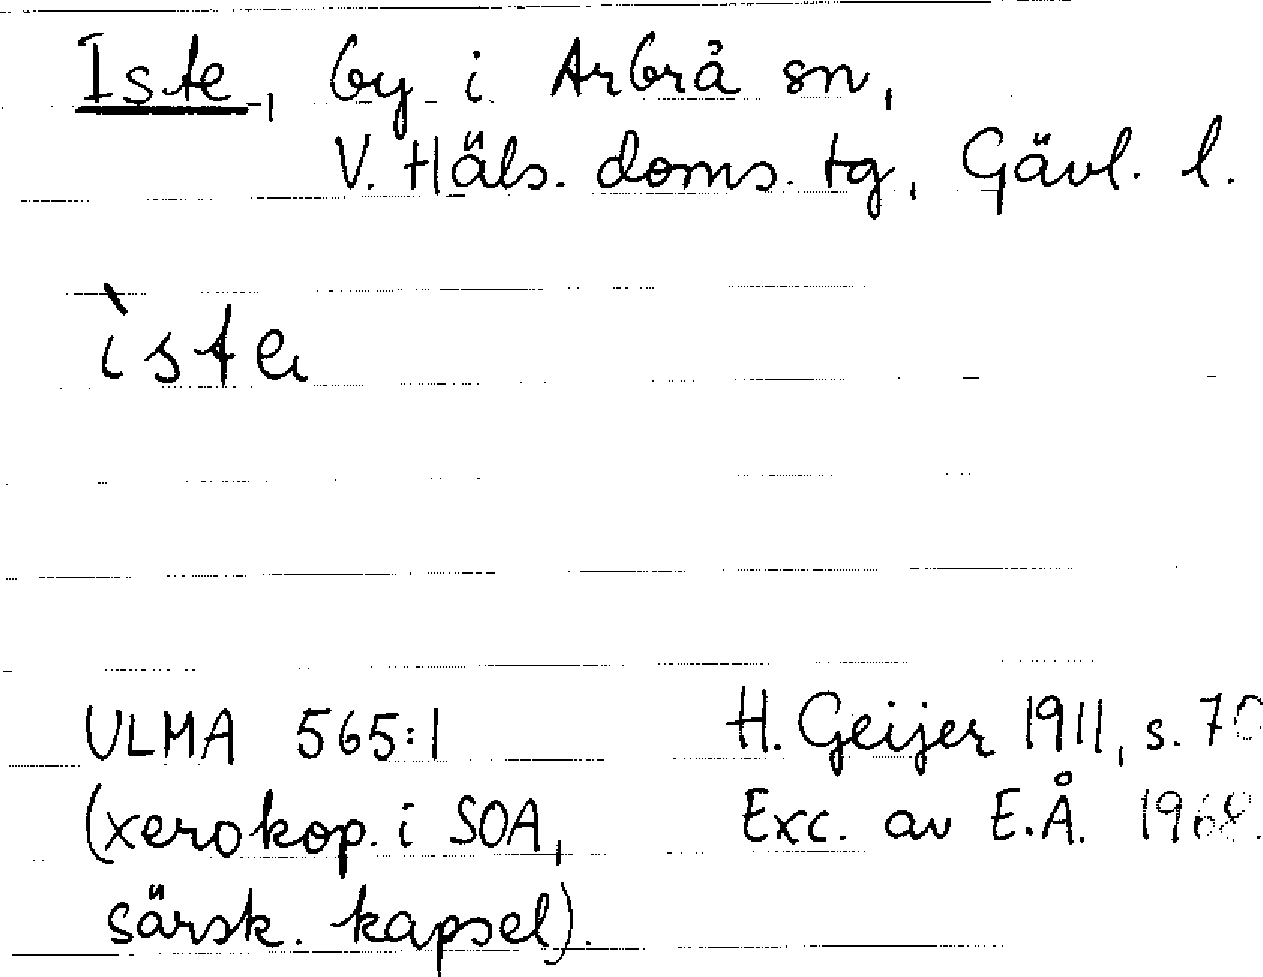 Iste, by i Arbrå sn,
V. Häls. doms. tg, Gävl. l.
ìste
ULMA 565:1
(xerokop. i SOA,
särsk. kapsel).
H. Geijer 1911, s. 70
Exc. av E.Å. 1968.